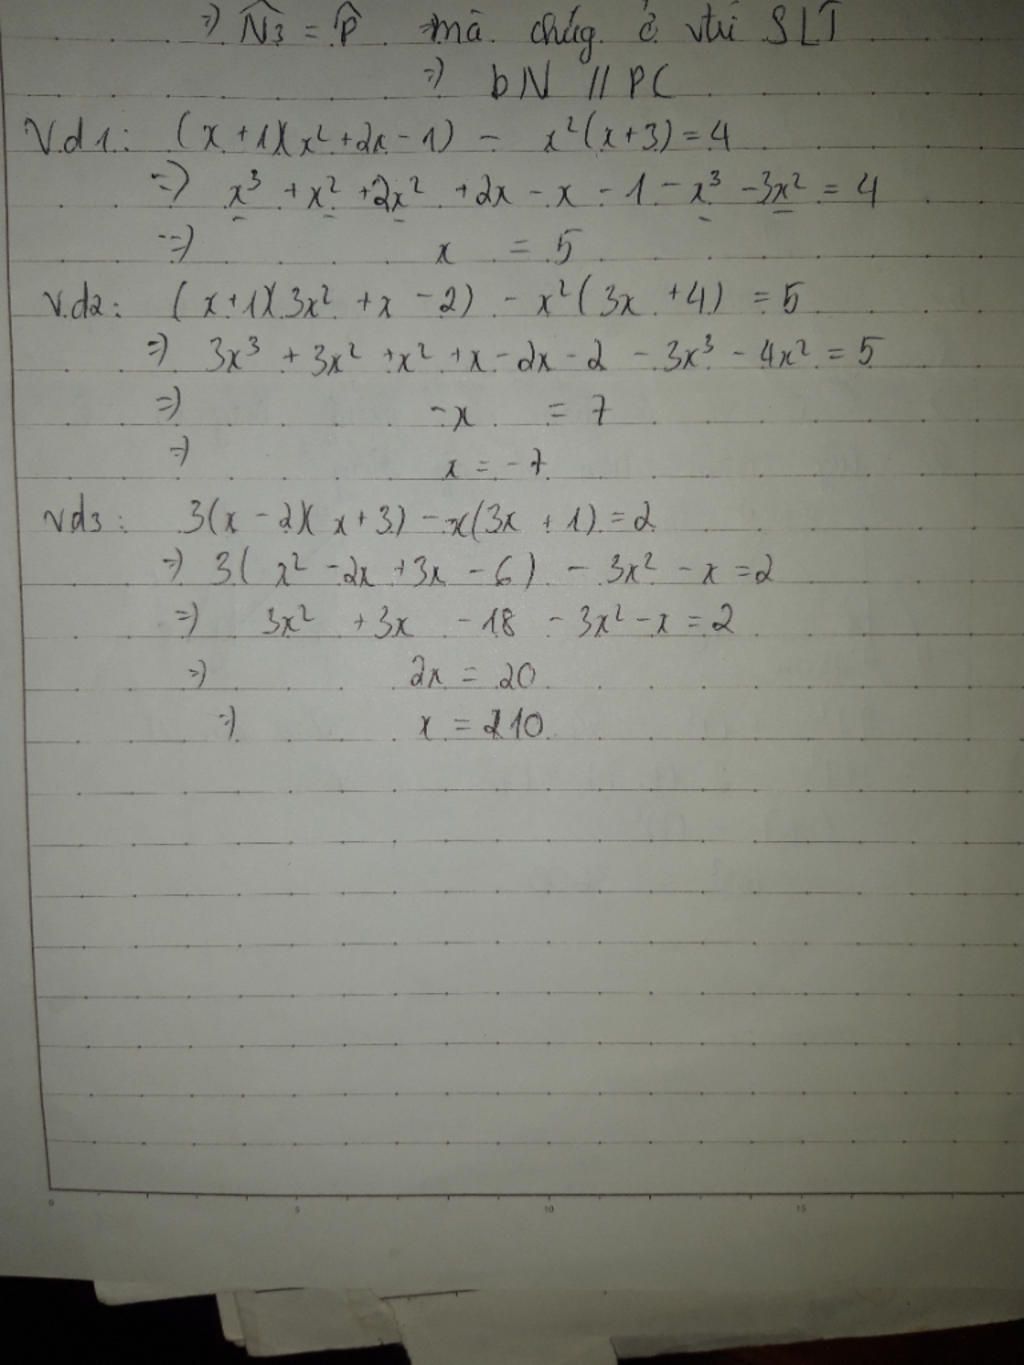 =) N̂3 = P̂ mà chúg ở vtrí SLT
=) bN // PC
V.d1: (x + 1)(x² + 2x - 1) - x²(x + 3) = 4
=) x³ + x² + 2x² + 2x - x - 1 - x³ - 3x² = 4
=) x = 5
V.d2: (x + 1)(3x² + x - 2) - x²(3x + 4) = 5
=) 3x³ + 3x² + x² + x - 2x - 2 - 3x³ - 4x² = 5
=) -x = 7
=) x = -7
Vd3: 3(x - 2)(x + 3) - x(3x + 1) = 2
=) 3(x² - 2x + 3x - 6) - 3x² - x = 2
=) 3x² + 3x - 18 - 3x² - x = 2
=) 2x = 20
=) x = 10
0 5 10 15